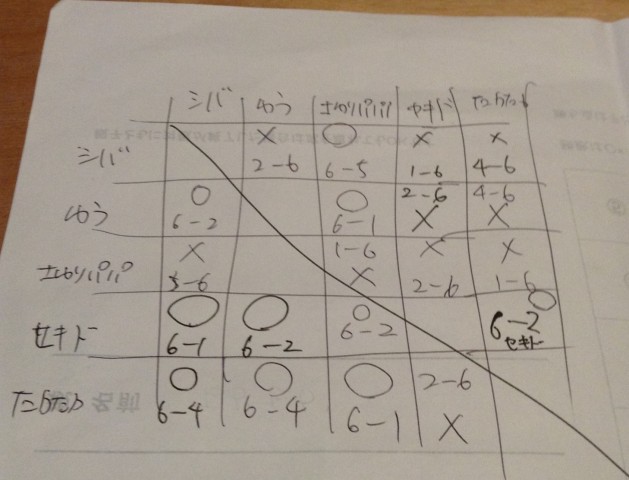 シバ ゆう さゆりパパ セキド
シバ × 2-6 ○ 6-5 × 1-6 × 4-6
ゆう ○ 6-2 ○ 6-1 2-6 × 4-6 ×
さゆりパパ × 5-6 1-6 × × 2-6 × 1-6
セキド ○ 6-1 ○ 6-2 ○ 6-2 ○ 6-2 セキド
○ 6-4 ○ 6-4 ○ 6-1 2-6 ×
名前